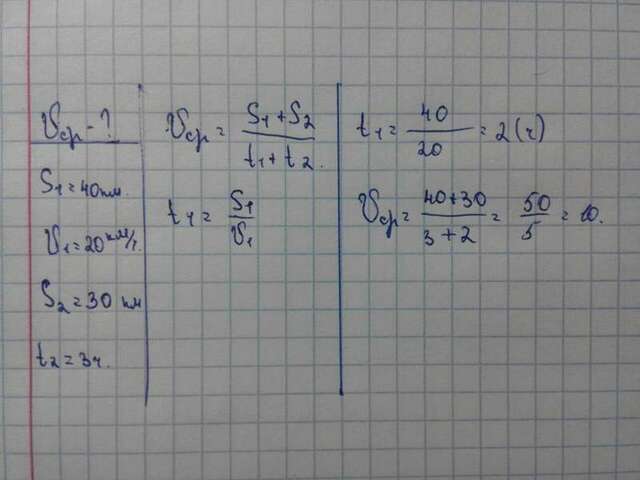 Vср - ?
S1 = 40 км.
V1 = 20 км/ч.
S2 = 30 км
t2 = 3ч.
Vср = (S1 + S2) / (t1 + t2.)
t1 = S1 / V1
t1 = 40 / 20 = 2 (ч)
Vср = (40 + 30) / (3 + 2) = 50 / 5 = 10.